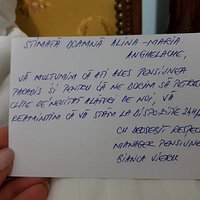 STIMATĂ DOAMNĂ ALINA - MARIA
ANGHELACHE,
VĂ MULȚUMIM CĂ AȚI ALES PENSIUNEA
PARADIS ȘI PENTRU CĂ NE DORIM SĂ PETRECEȚI
CLIPE DE NEUITAT ALĂTURI DE NOI, VĂ
REAMINTIM CĂ VĂ STĂM LA DISPOZIȚIE 24H/
CU DEOSEBIT RESPECT
MANAGER PENSIUNE
BIANCA VIERU